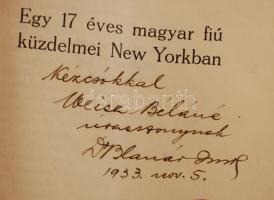 Egy 17 éves magyar fiú
küzdelmei New Yorkban
Kézcsókkal
Weisz Beláné
úrasszonynak
Dr Blanár
1933. nov. 5.